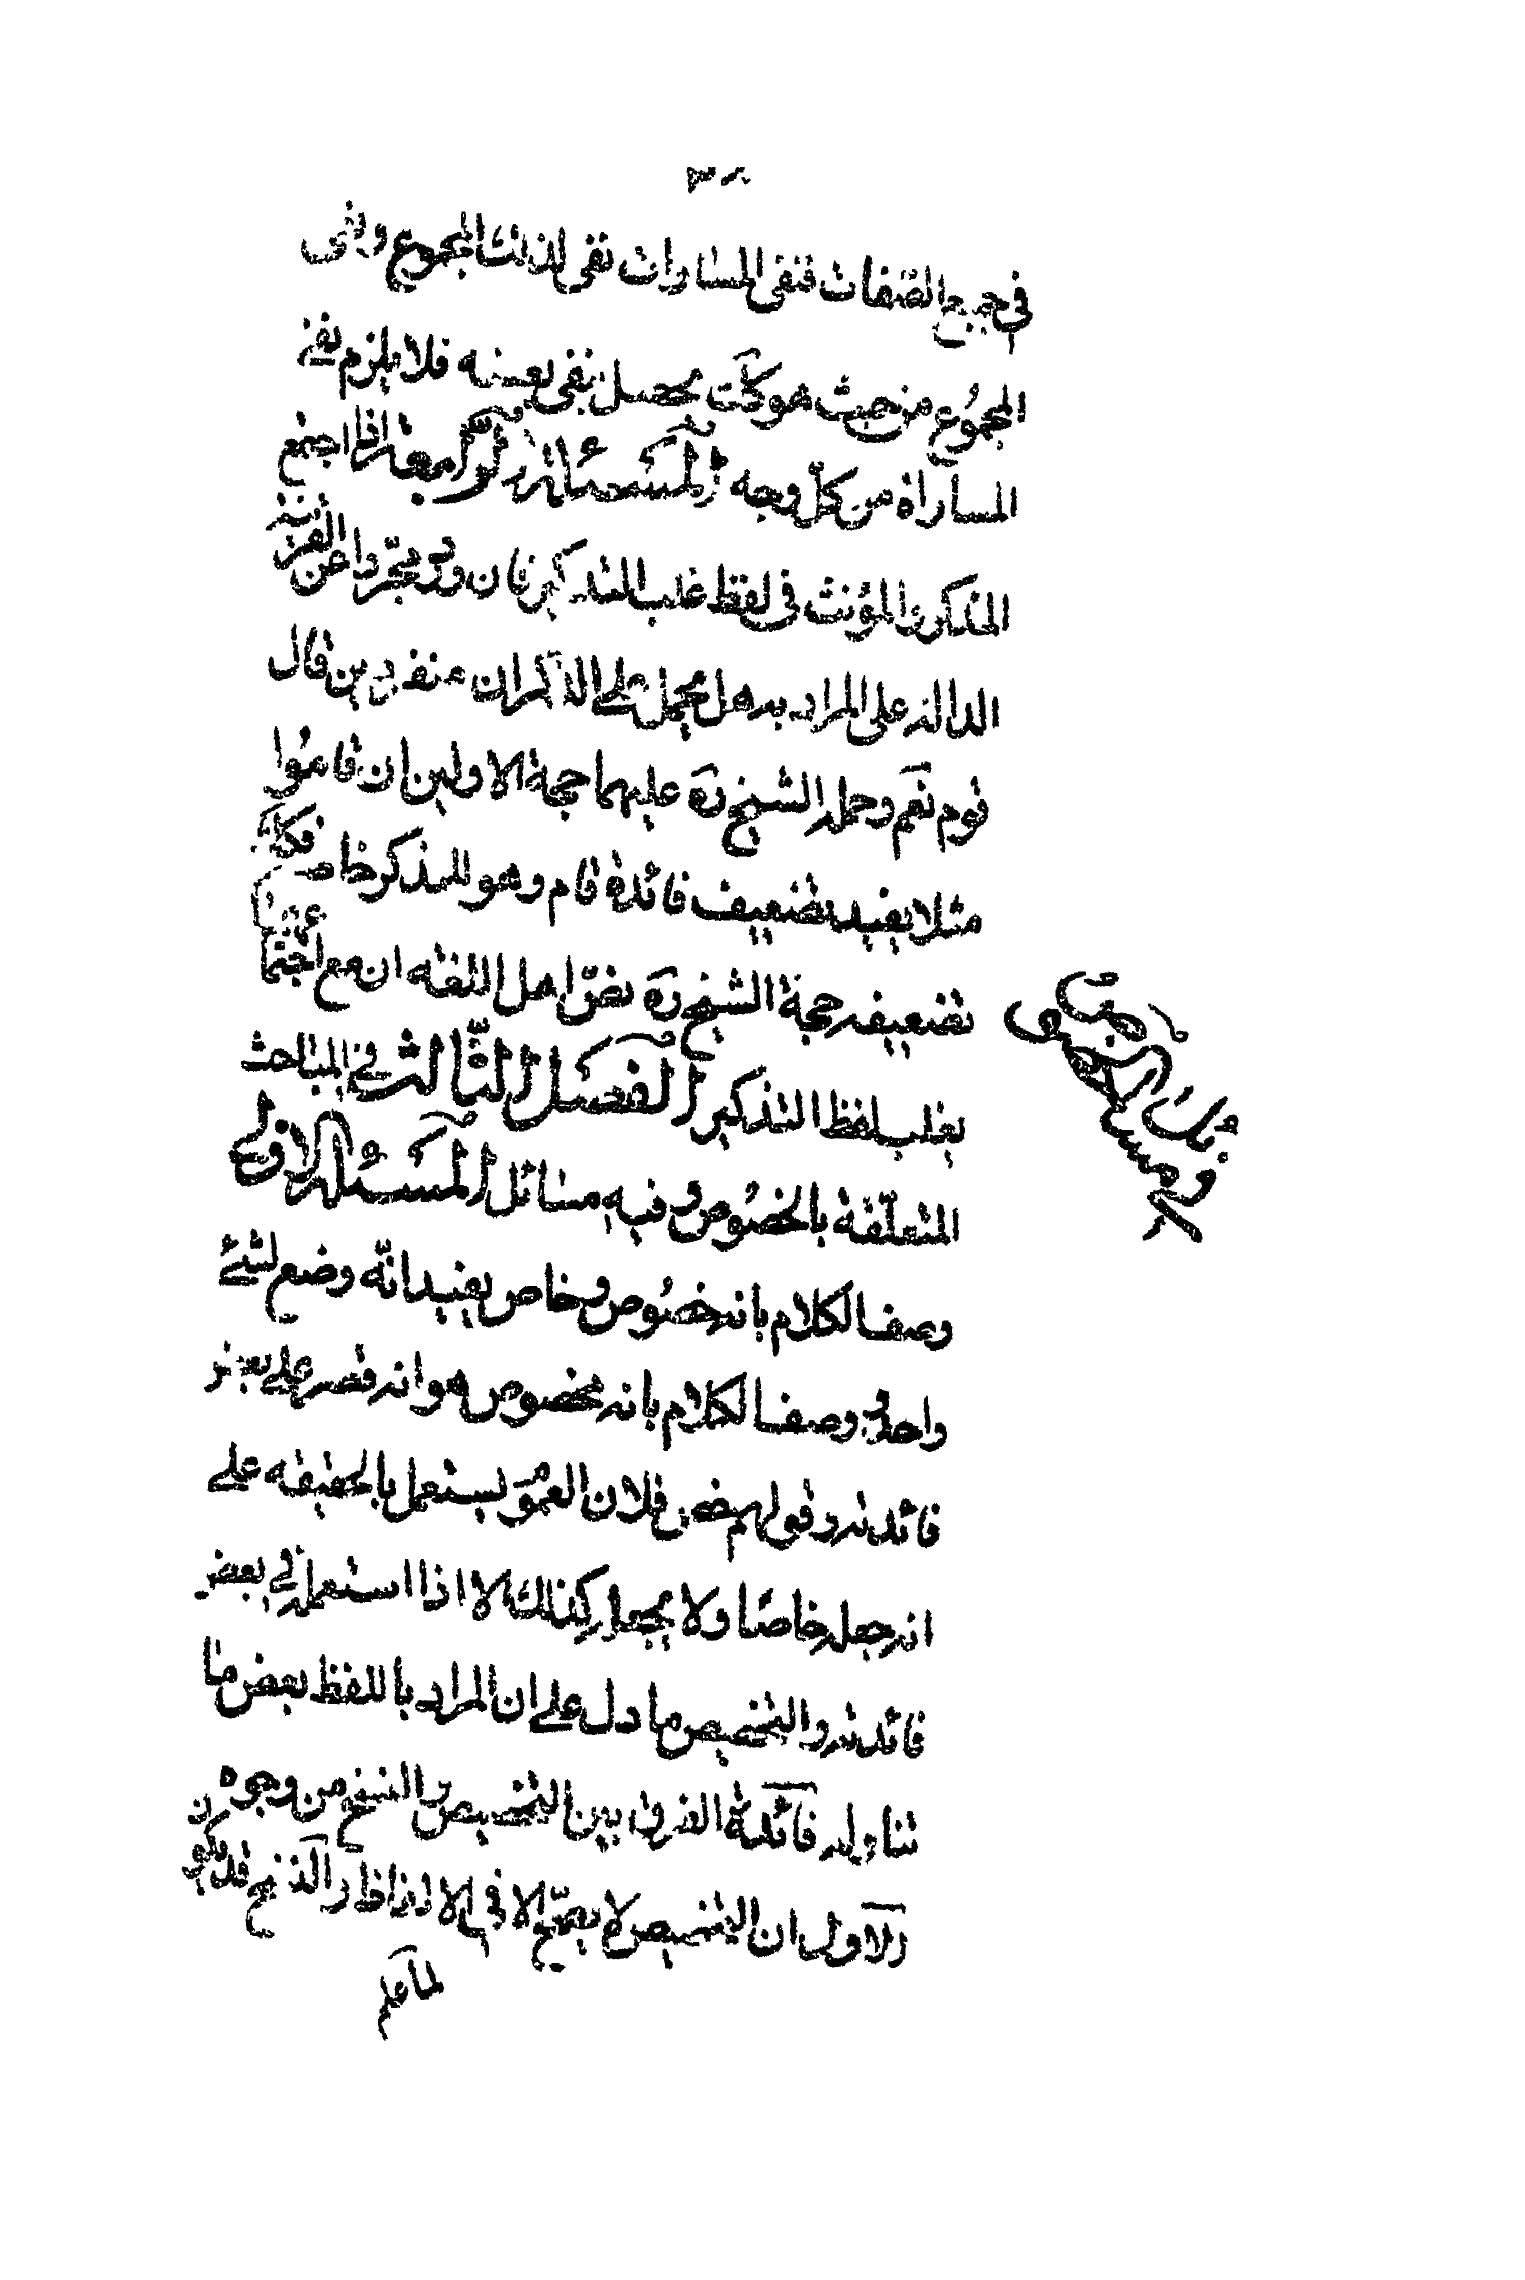 ٣٨
في جميع الصفات فنفى المساوات نفى لذلك المجموع ونفى
المجموع من حيث هو كلّ يحصل بنفى بعضه فلا يلزم نفى
المساواة من كلّ وجه المسئلة اذا اجتمع
المذكر والمؤنث في لفظ غلب التذكير فان ورد مجرّدا عن القرينة
الدالة على المراد به هل يحمل على الذكران منفردين قال
قوم نعم وحمله الشيخ ره عليهما حجة الاولين ان قاموا
مثلا يفيد تضعيف فائدة قام وهو للمذكر خاصة فكذا
تضعيفه حجة الشيخ ره نصّ اهل اللغة ان مع اجتماعهما
يغلب لفظ التذكير الفصل الثالث في المباحث
المتعلّقة بالخصوص وفيه مسائل المسئلة الاولى
وصف الكلام بانه خصوص وخاص يفيد انّه وضع لشئ
واحد ووصف الكلام بانه مخصوص هو انه قصر على بعض
فائدته وقولهم خص فلان العموم يستعمل بالحقيقه على
انه جعله خاصّا ولا يجعل كذلك الا اذا استعمله في بعض
فائدته والتخصيص ما دل على ان المراد باللفظ بعض ما
تناوله فائدة الفرق بين التخصيص والنسخ من وجوه
الاول ان التخصيص لا يصحّ الا في الالفاظ والنسخ قد يكون
لما علم